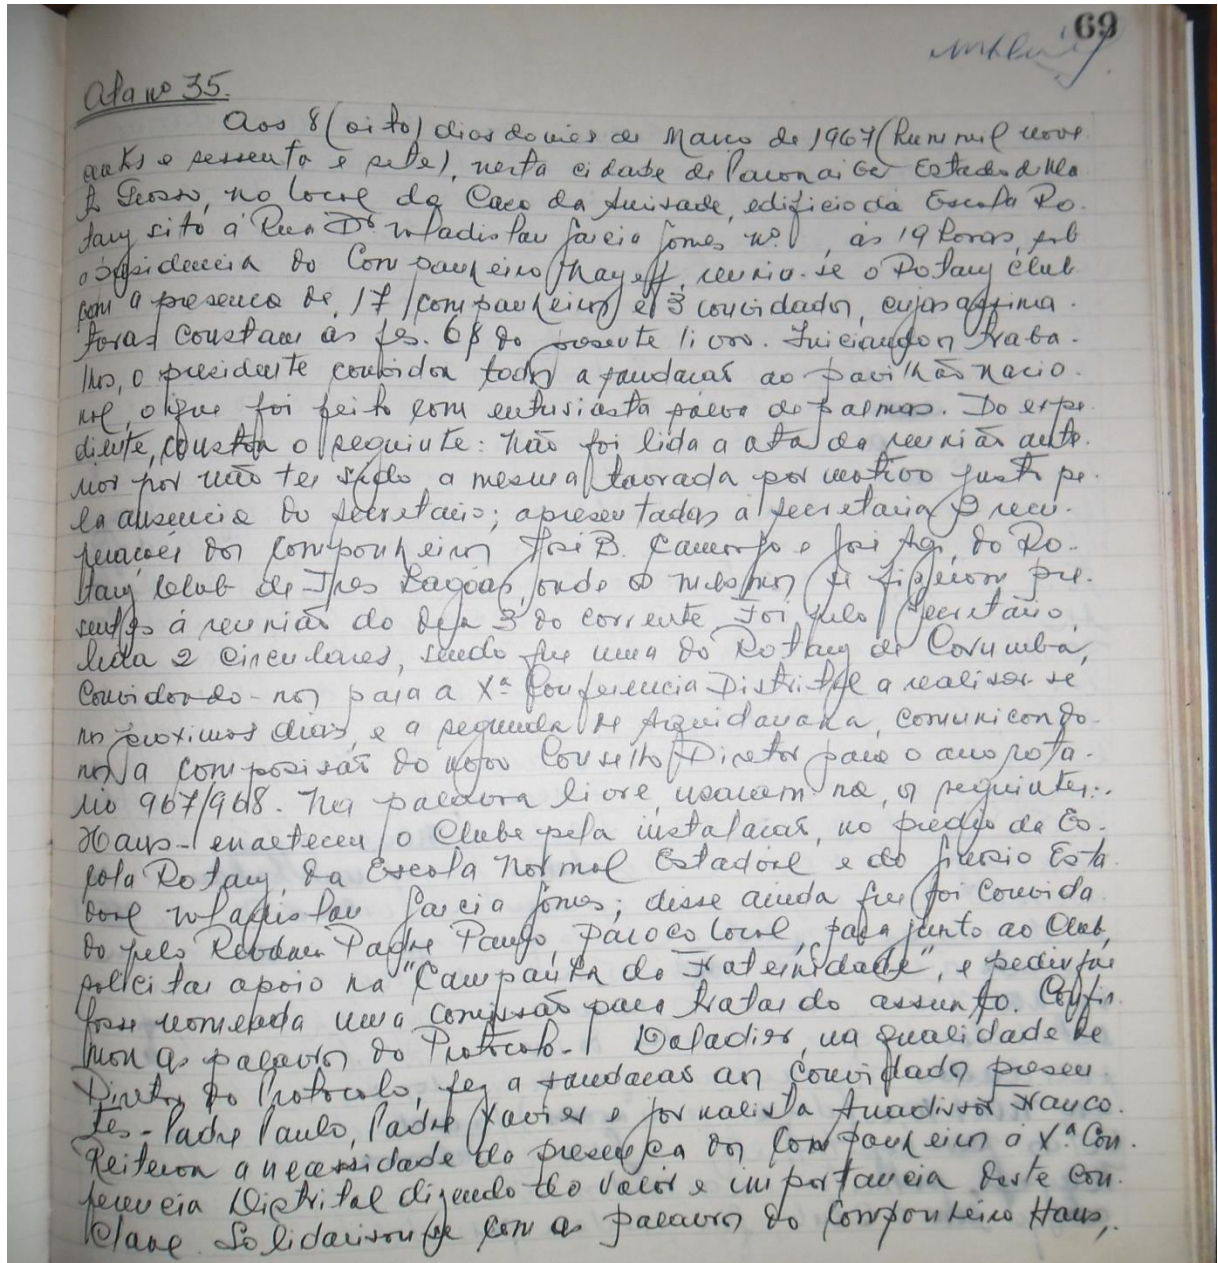 69
Ata nº 35.
Aos 8 (oito) dias do mes de Março de 1967 (hum mil nove
centos e sessenta e sete), nesta cidade de Paranaiba Estado de Ma
to Grosso, no local da Casa da Amisade, edificio da Escola Ro.
tary sito á Rua Dr Wladislau Garcia Gomes nº. , ás 19 horas, sob
a presidencia do Companheiro Thayeff, reuniu-se o Rotary Club
com a presença de 17 companheiros e 3 convidados, cujas assina.
turas constam as fls. 68 do presente livro. Iniciando os traba.
lhos, o presidente convidou todos a saudacão ao pavilhão nacio.
nal, o que foi feito com entusiasta salva de palmas. Do expe.
diente, constou o seguinte: Não foi lida a ata da reunião ante.
rior por não ter sido a mesma lavrada por motivo justo pe.
la ausencia do secretario; apresentadas a secretaria recu.
peracões dos companheiros José B. Camargo e José Agi, do Ro.
tary Club de Tres Lagoas, onde os mesmos se fizeram pre.
sentes á reunião do dia 3 do corrente. Foi pelo Secretário
lida 2 circulares, sendo que uma do Rotary de Corumbá,
Convidando-nos para a Xª Conferencia Distrital a realisar-se
nos proximos dias, e a segunda de Aquidauana, comunicando-
nos a composisão do novo Conselho Diretor para o ano rota.
rio 967/968. Na palavra livre, usaram-na, os seguintes:.
Haus - enalteceu o Clube pela instalacão, no predio da Es.
cola Rotary, da Escola Normal Estadoal e do Ginasio Esta
doal Wladislau Garcia Gomes; disse ainda que foi convida
do pelo Padre Paulo, Paroco local, para junto ao Club,
solicitar apoio na "Campanha da Fraternidade", e pediu que
fosse nomeada uma comissão para tratar do assunto. Confir.
mou as palavras do Protocolo - Daladier, na qualidade de
Diretor do Protocolo, fez a saudacão aos convidados presen
tes - Padre Paulo, Padre Xavier e jornalista Franco.
Reiterou a necessidade da presença dos companheiros á Xª Con.
ferencia Distrital dizendo do valor e importancia deste con.
clave. Solidarisou-se com as palavras do Companheiro Haus,